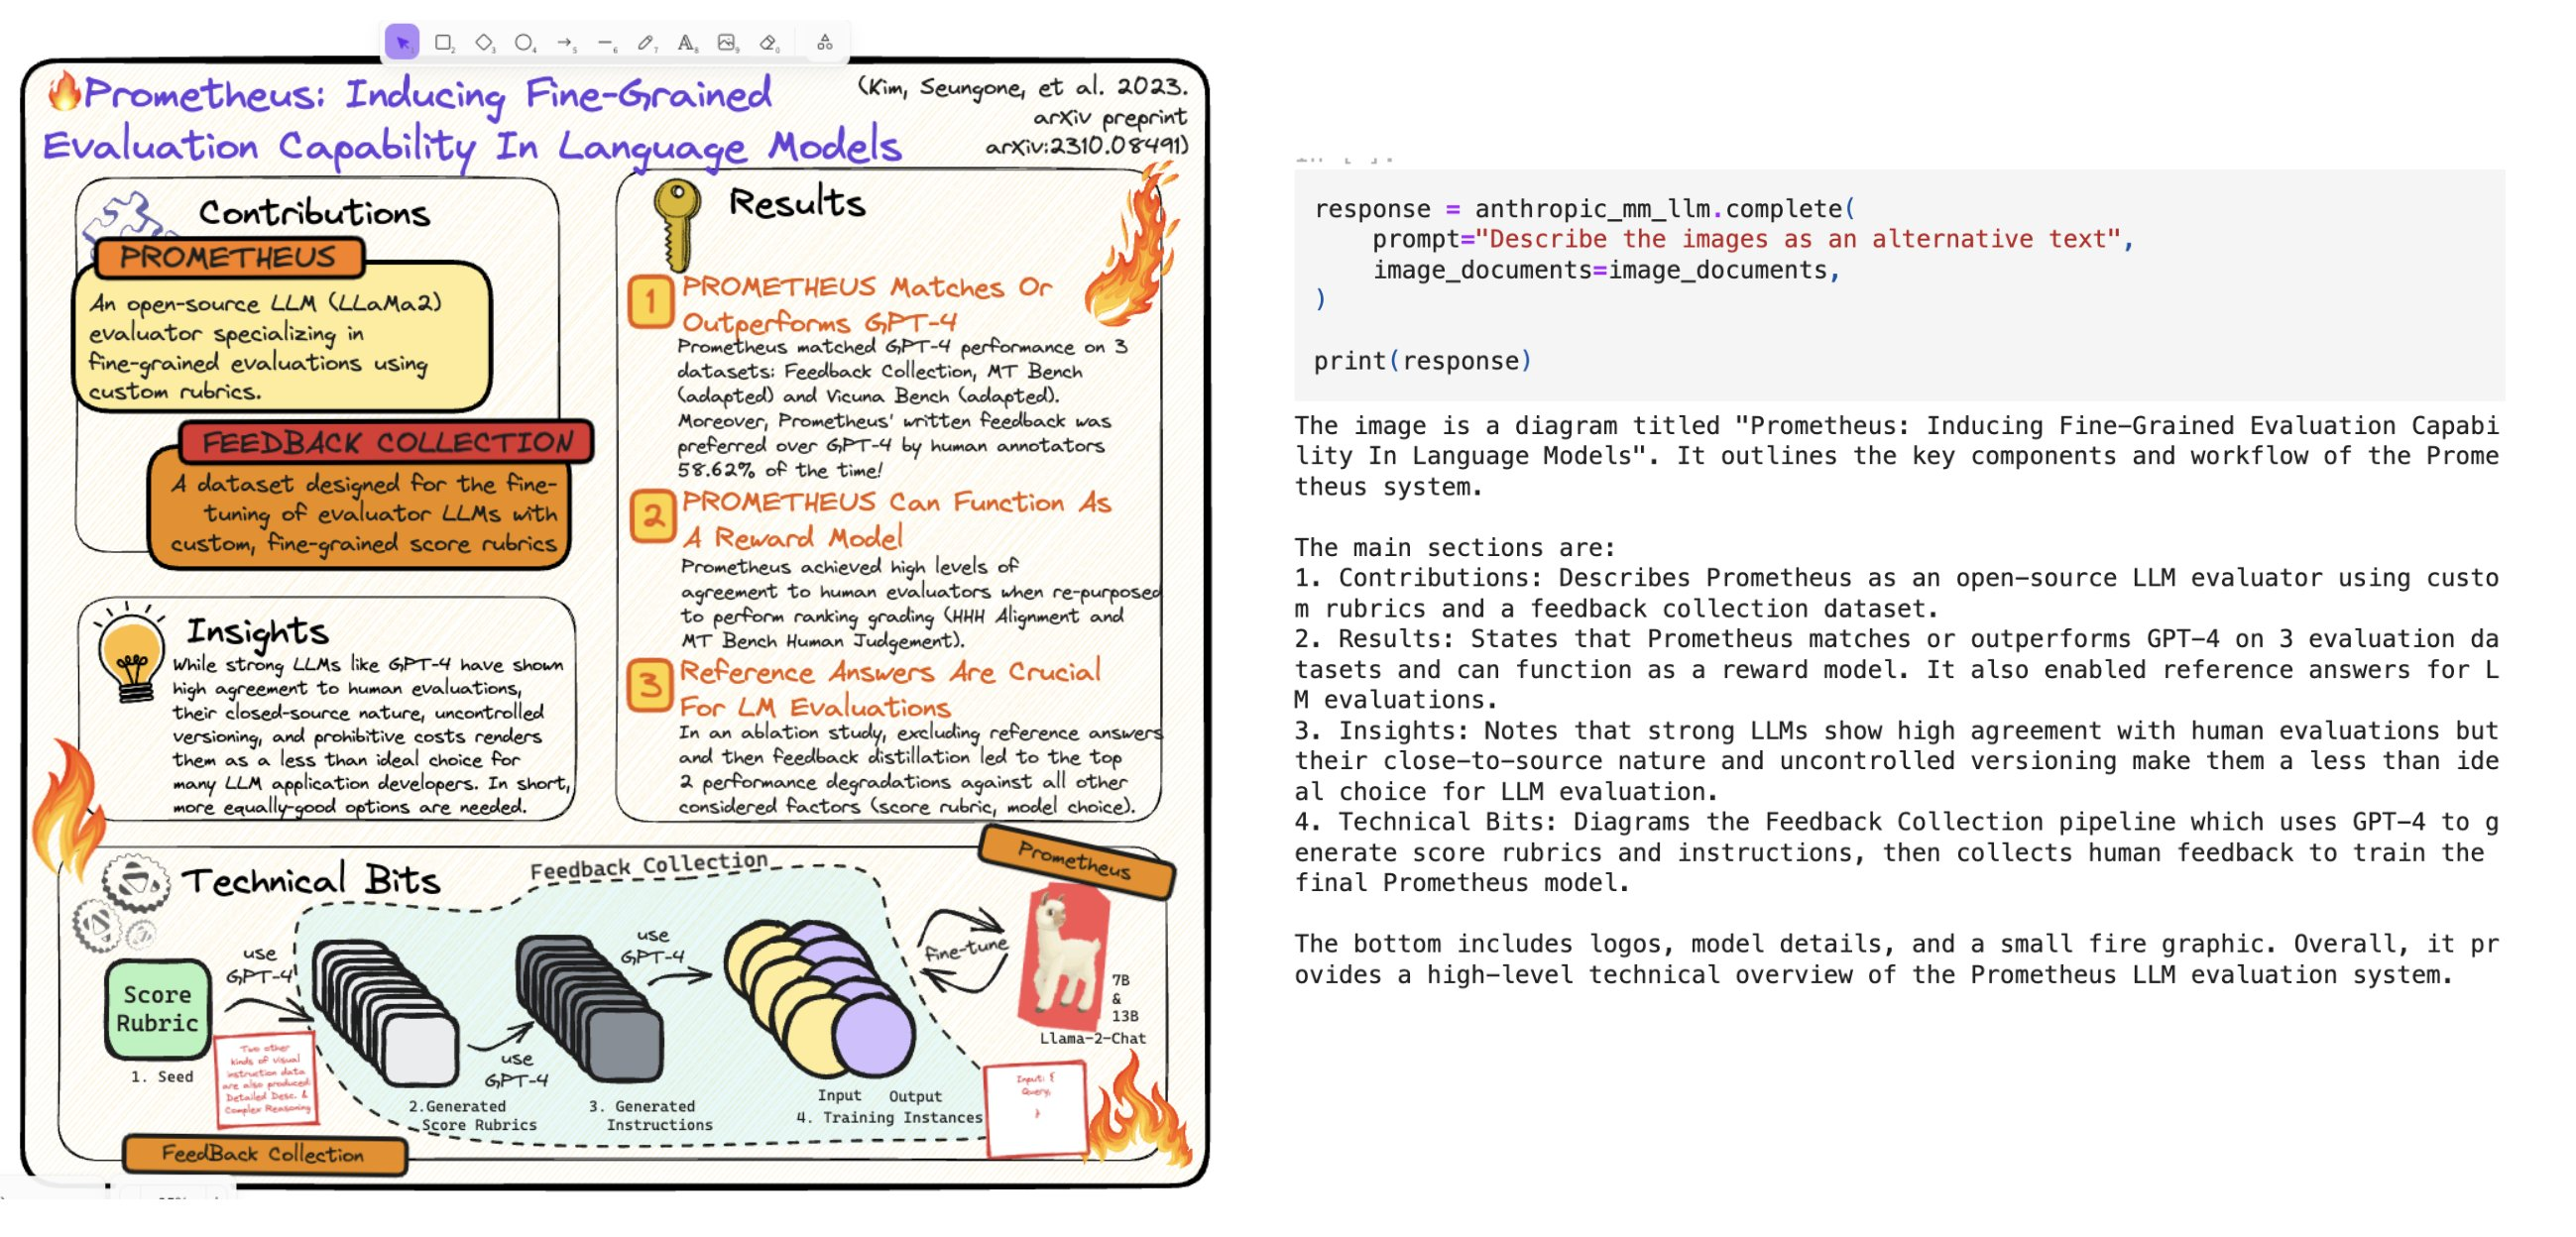 🔥Prometheus: Inducing Fine-Grained
Evaluation Capability In Language Models
(Kim, Seungone, et al. 2023.
arXiv preprint
arXiv:2310.08491)
Contributions
PROMETHEUS
An open-source LLM (LLaMa2)
evaluator specializing in
fine-grained evaluations using
custom rubrics.
FEEDBACK COLLECTION
A dataset designed for the fine-
tuning of evaluator LLMs with
custom, fine-grained score rubrics
Insights
While strong LLMs like GPT-4 have shown
high agreement to human evaluations,
their closed-source nature, uncontrolled
versioning, and prohibitive costs renders
them as a less than ideal choice for
many LLM application developers. In short,
more equally-good options are needed.
Results
1
PROMETHEUS Matches Or
Outperforms GPT-4
Prometheus matched GPT-4 performance on 3
datasets: Feedback Collection, MT Bench
(adapted) and Vicuna Bench (adapted).
Moreover, Prometheus' written feedback was
preferred over GPT-4 by human annotators
58.62% of the time!
2
PROMETHEUS Can Function As
A Reward Model
Prometheus achieved high levels of
agreement to human evaluators when re-purposed
to perform ranking grading (HHH Alignment and
MT Bench Human Judgement).
3
Reference Answers Are Crucial
For LM Evaluations
In an ablation study, excluding reference answers
and then feedback distillation led to the top
2 performance degradations against all other
considered factors (score rubric, model choice).
Technical Bits
Feedback Collection
Prometheus
Score
Rubric
1. Seed
use
GPT-4
Two other
kinds of visual
instruction data
are also produced:
Detailed Desc. &
Complex Reasoning
2.Generated
Score Rubrics
use
GPT-4
3. Generated
Instructions
use
GPT-4
Input Output
4. Training Instances
fine-tune
7B
&
13B
Llama-2-Chat
Input: {
Query,
}
FeedBack Collection
response = anthropic_mm_llm.complete(
    prompt="Describe the images as an alternative text",
    image_documents=image_documents,
)
print(response)
The image is a diagram titled "Prometheus: Inducing Fine-Grained Evaluation Capabi
lity In Language Models". It outlines the key components and workflow of the Prome
theus system.
The main sections are:
1. Contributions: Describes Prometheus as an open-source LLM evaluator using custo
m rubrics and a feedback collection dataset.
2. Results: States that Prometheus matches or outperforms GPT-4 on 3 evaluation da
tasets and can function as a reward model. It also enabled reference answers for L
M evaluations.
3. Insights: Notes that strong LLMs show high agreement with human evaluations but
their close-to-source nature and uncontrolled versioning make them a less than ide
al choice for LLM evaluation.
4. Technical Bits: Diagrams the Feedback Collection pipeline which uses GPT-4 to g
enerate score rubrics and instructions, then collects human feedback to train the
final Prometheus model.
The bottom includes logos, model details, and a small fire graphic. Overall, it pr
ovides a high-level technical overview of the Prometheus LLM evaluation system.